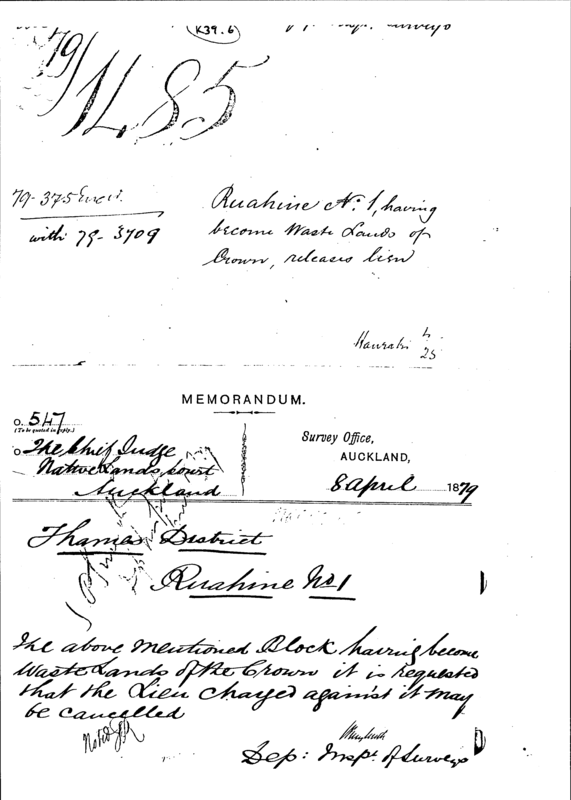 K39.6
79/1485
79-375
with 79-3709
Ruahine No. 1, having
become Waste Lands of
Crown, releases lien
Hauraki 4
25
MEMORANDUM.
O. 547
(To be quoted in reply.)
Survey Office,
AUCKLAND,
8 April 1879
The Chief Judge
Native Lands Court
Auckland
Thames District
Ruahine No 1
The above mentioned Block having become
Waste Lands of the Crown it is requested
that the Lien charged against it may
be cancelled
Noted
Dep: Inspt. of Surveys